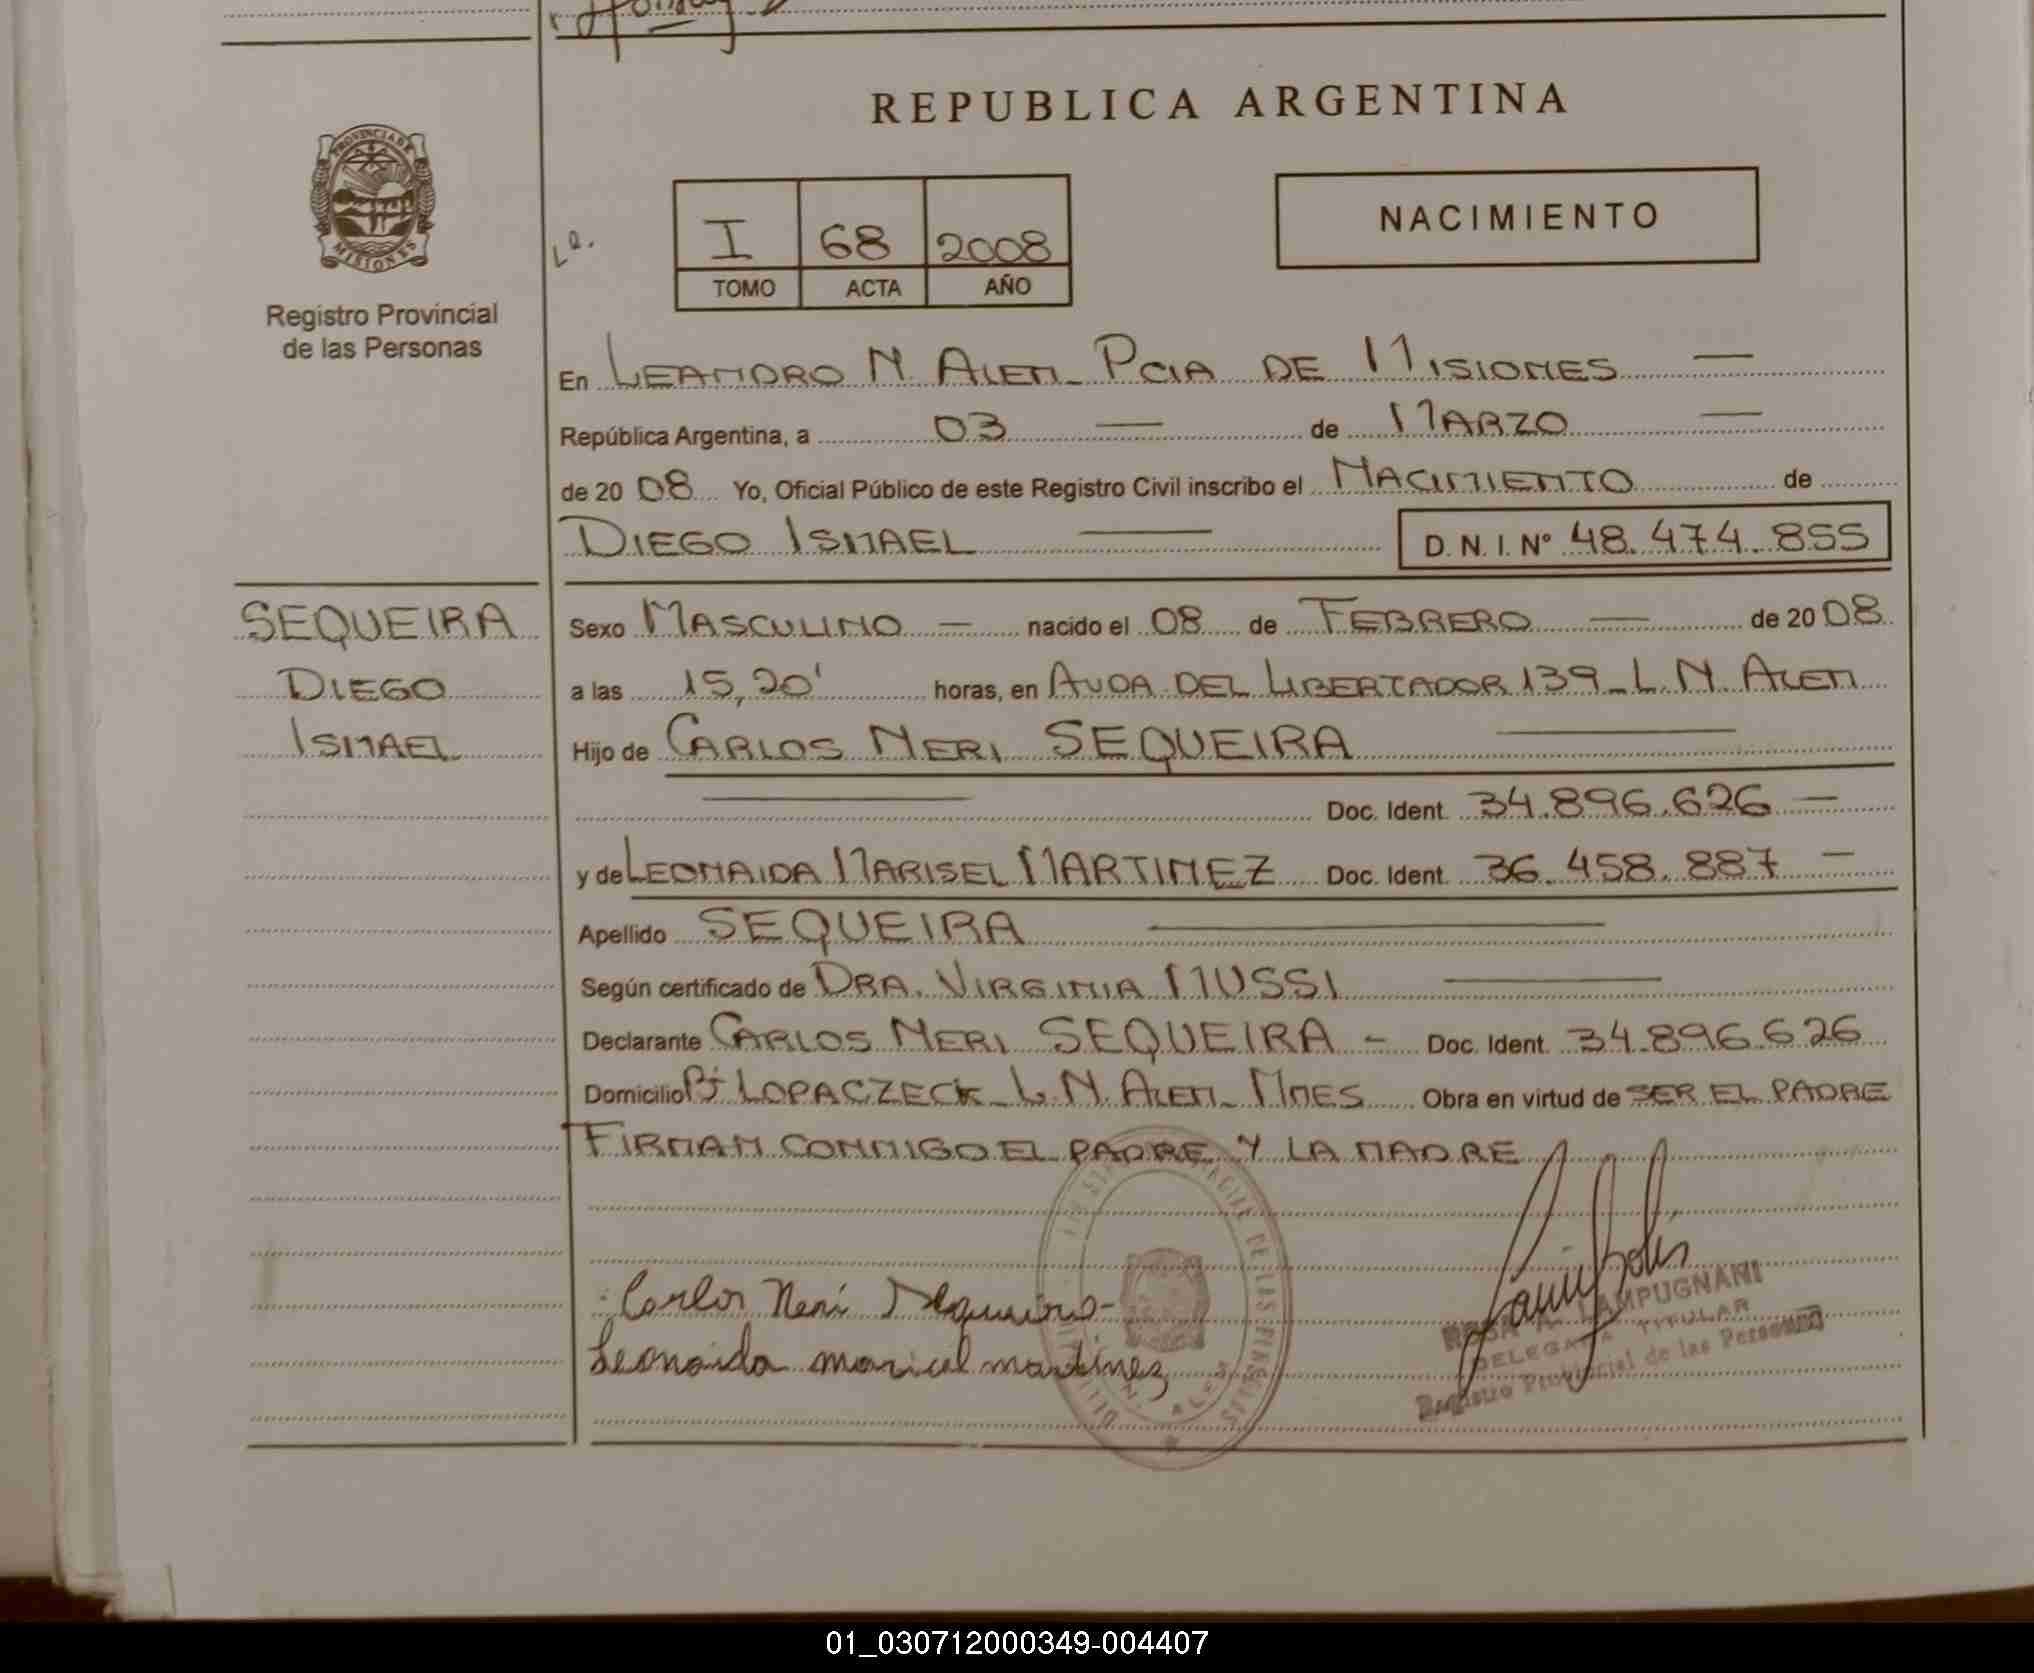 REPUBLICA ARGENTINA
PROVINCIA DE
MISIONES
Registro Provincial
de las Personas
I 68 2008
TOMO ACTA AÑO
NACIMIENTO
En LEANDRO N. ALEM - PCIA DE MISIONES —
República Argentina, a 03 — de MARZO —
de 20 08 Yo, Oficial Público de este Registro Civil inscribo el NACIMIENTO de
DIEGO ISMAEL — D. N. I. Nº 48.474.855
SEQUEIRA
DIEGO
ISMAEL
Sexo MASCULINO — nacido el 08 de FEBRERO — de 20 08
a las 15,20' horas, en AVDA. DEL LIBERTADOR 139 - L. N. ALEM
Hijo de CARLOS NERI SEQUEIRA —
— Doc. Ident. 34.896.626 —
y de LEONAIDA MARISEL MARTINEZ Doc. Ident. 36.458.887 —
Apellido SEQUEIRA —
Según certificado de DRA. VIRGINIA MUSSI —
Declarante CARLOS NERI SEQUEIRA - Doc. Ident. 34.896.626
Domicilio Bº LOPACZECK - L. N. ALEM - MNES Obra en virtud de SER EL PADRE
FIRMAN CONMIGO EL PADRE Y LA MADRE
Carlos Neri Sequeira-
Leonaida maricel martinez
ROSA A. LAMPUGNANI
DELEGADA TITULAR
Registro Provincial de las Personas
01_030712000349-004407